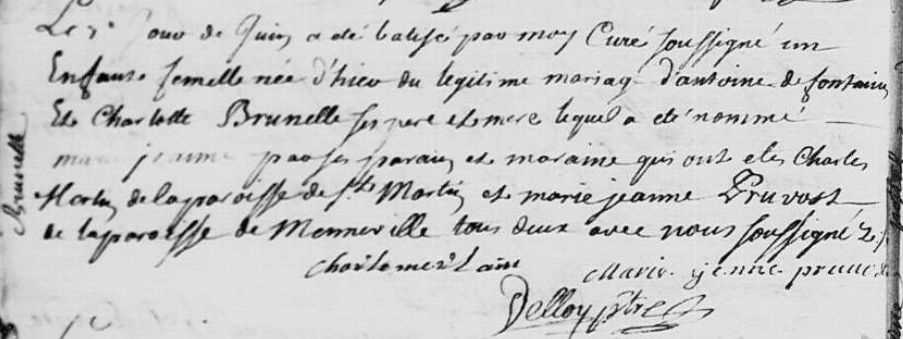 Le 7e Jour de Juin a été batisé par moy Curé soussigné un
Enfante femelle née d'hier du legitime mariag d'antoine de fontaine
Et Charlotte Brunelle ses pere et mere lequel a eté nommé
marie jeanne par ses parain et maraine qui ont etes Charles
Martin de la paroisse de St Martin et marie jeanne Pruvost
de la paroisse de Menneville tous deux avec nous soussignez
Brunelle
Marie jenne
Delloy ptre